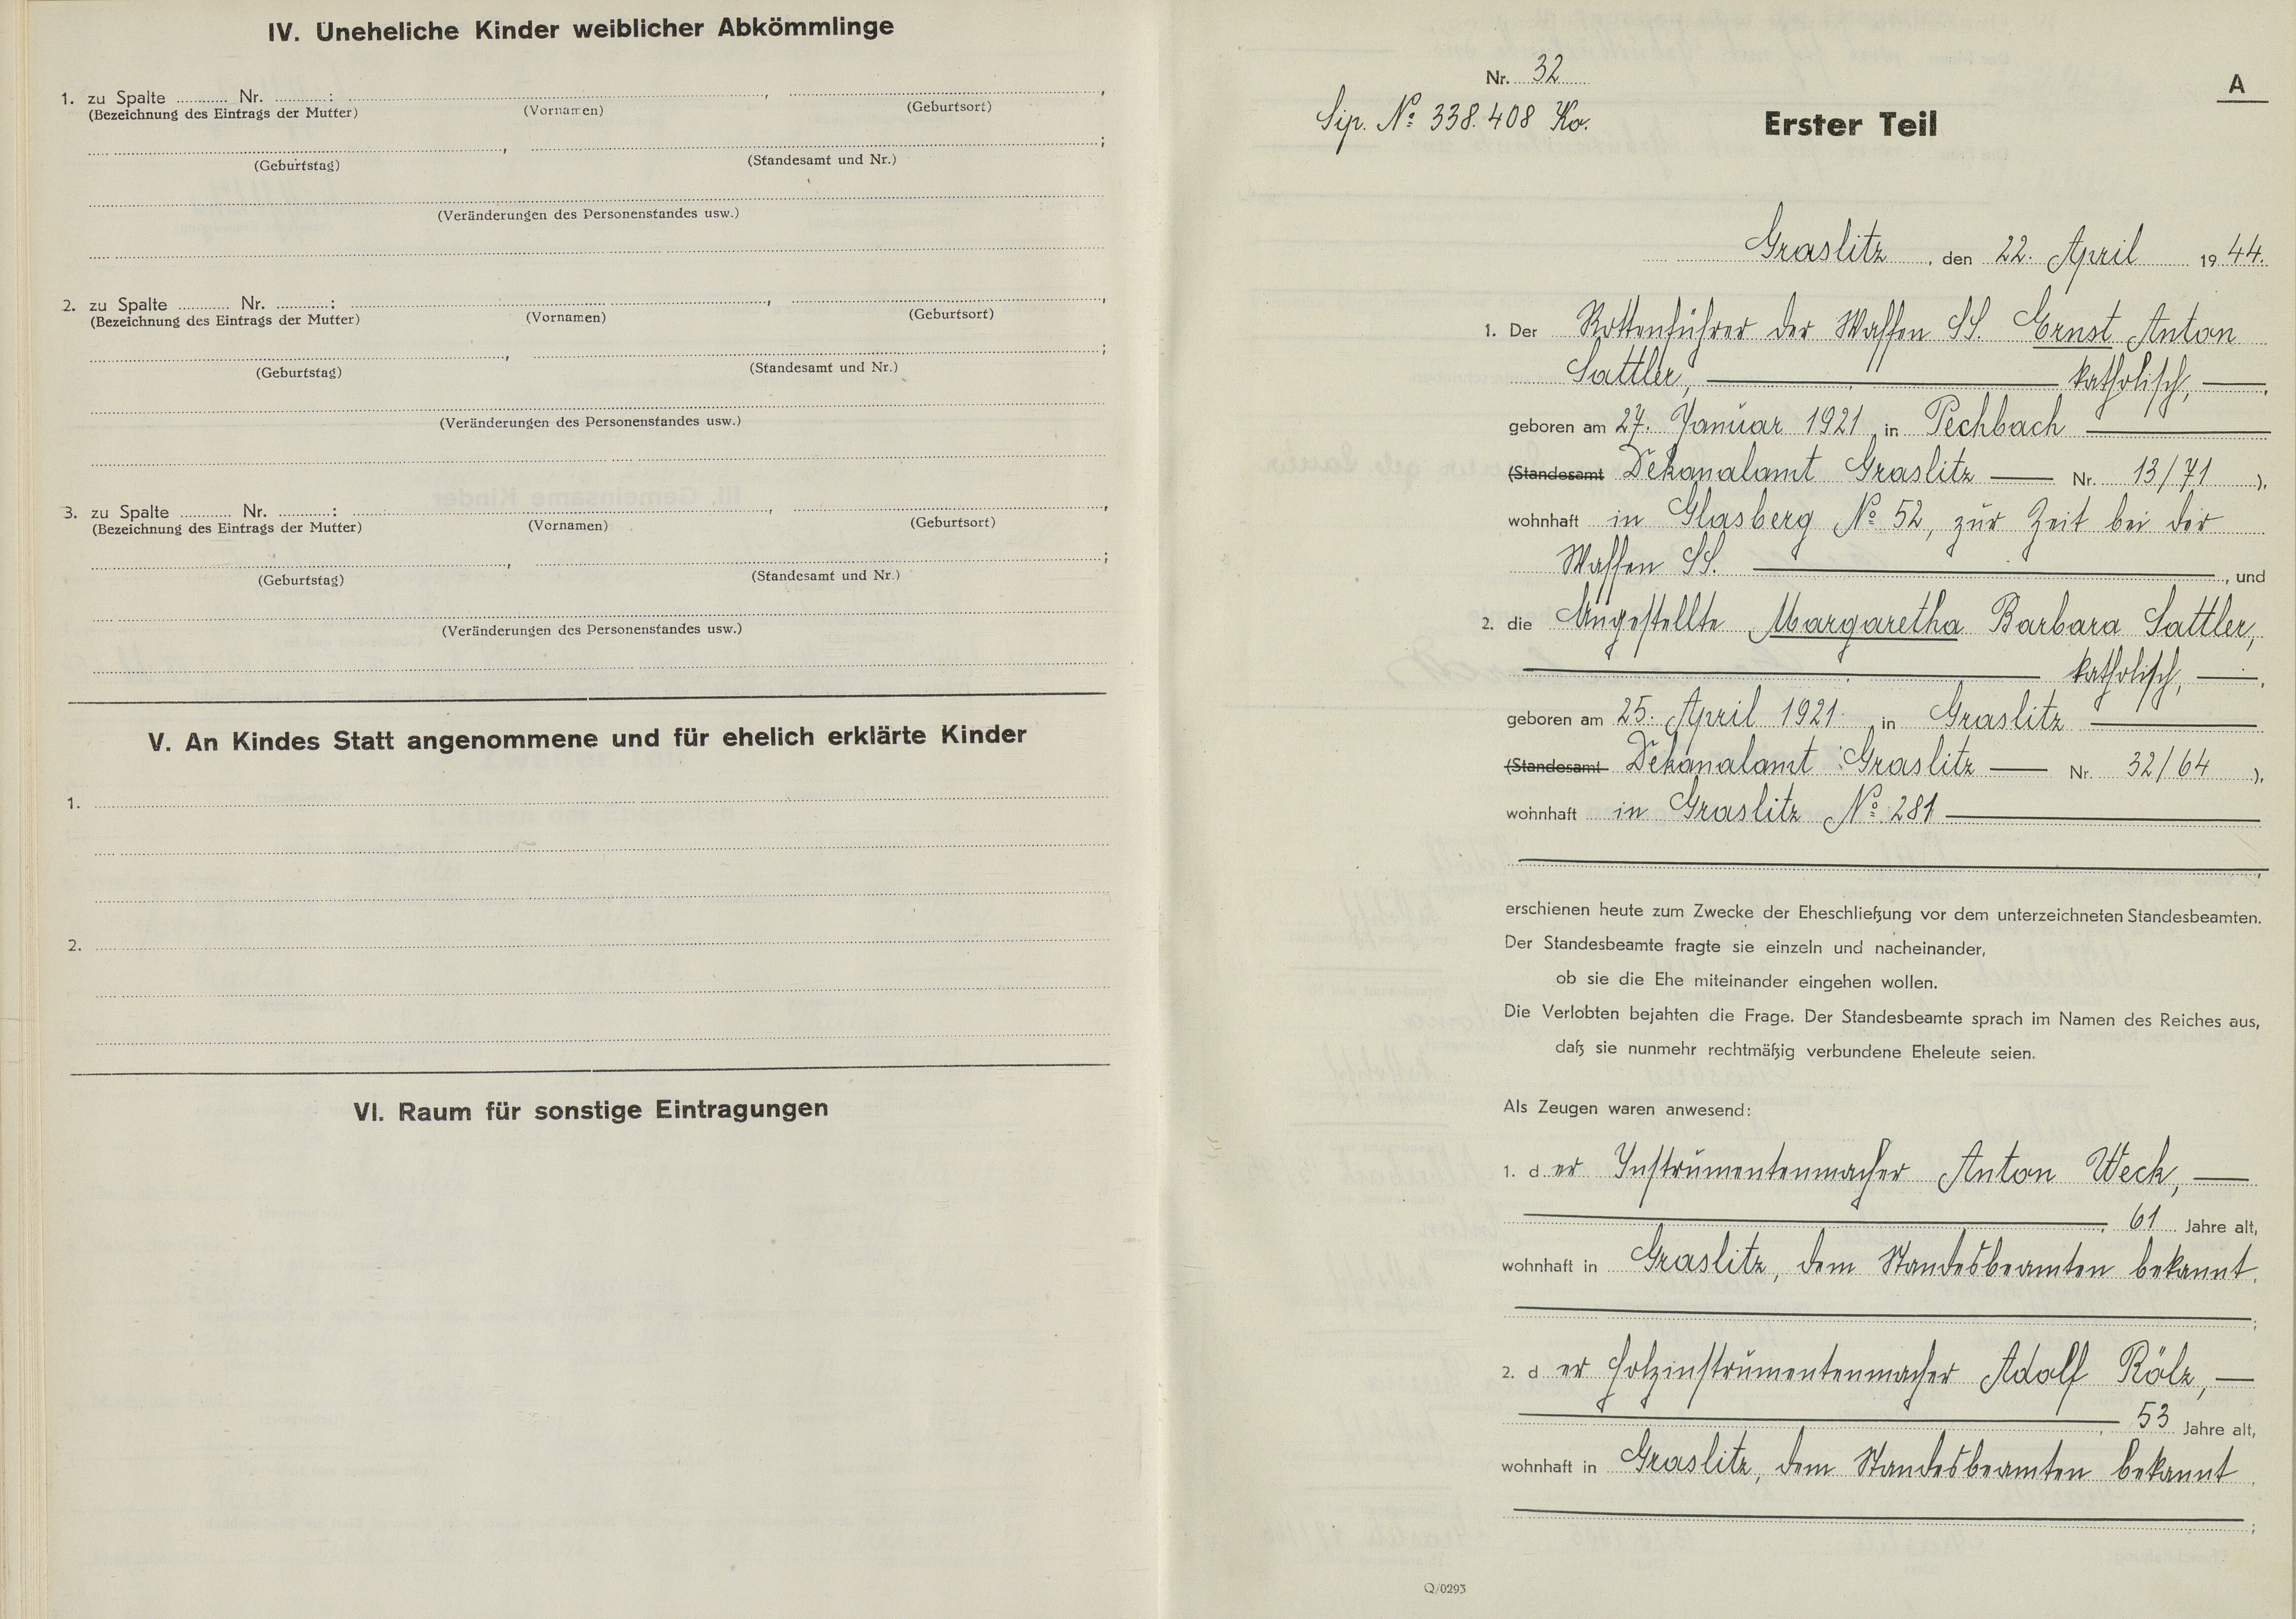 IV. Uneheliche Kinder weiblicher Abkömmlinge
1. zu Spalte ........... Nr. ...........: ..........,  ..........,
(Bezeichnung des Eintrags der Mutter) (Vornamen) (Geburtsort)
(Geburtstag) (Standesamt und Nr.)
(Veränderungen des Personenstandes usw.)
2. zu Spalte ........... Nr. ...........: ..........,  ..........,
(Bezeichnung des Eintrags der Mutter) (Vornamen) (Geburtsort)
(Geburtstag) (Standesamt und Nr.)
(Veränderungen des Personenstandes usw.)
3. zu Spalte ........... Nr. ...........: ..........,  ..........,
(Bezeichnung des Eintrags der Mutter) (Vornamen) (Geburtsort)
(Geburtstag) (Standesamt und Nr.)
(Veränderungen des Personenstandes usw.)
V. An Kindes Statt angenommene und für ehelich erklärte Kinder
1.
2.
VI. Raum für sonstige Eintragungen
Nr. 32
A
Sip. No 338.408 Ko.
Erster Teil
Graslitz, den 22. April 1944.
1. Der Rottenführer der Waffen SS. Ernst Anton
Sattler, katholisch,
geboren am 27. Januar 1921, in Pechbach
(Standesamt Dekanalamt Graslitz — Nr. 13/71 ),
wohnhaft in Glasberg No 52, zur Zeit bei der
Waffen SS. , und
2. die Angestellte Margaretha Barbara Sattler,
katholisch,
geboren am 25. April 1921, in Graslitz
(Standesamt Dekanalamt Graslitz — Nr. 32/64 ),
wohnhaft in Graslitz No 281
erschienen heute zum Zwecke der Eheschließung vor dem unterzeichneten Standesbeamten.
Der Standesbeamte fragte sie einzeln und nacheinander,
ob sie die Ehe miteinander eingehen wollen.
Die Verlobten bejahten die Frage. Der Standesbeamte sprach im Namen des Reiches aus,
daß sie nunmehr rechtmäßig verbundene Eheleute seien.
Als Zeugen waren anwesend:
1. d er Instrumentenmacher Anton Weck, —
61 Jahre alt,
wohnhaft in Graslitz, dem Standesbeamten bekannt.
2. d er Holzinstrumentenmacher Adolf Rölz, —
53 Jahre alt,
wohnhaft in Graslitz, dem Standesbeamten bekannt.
Q/0293